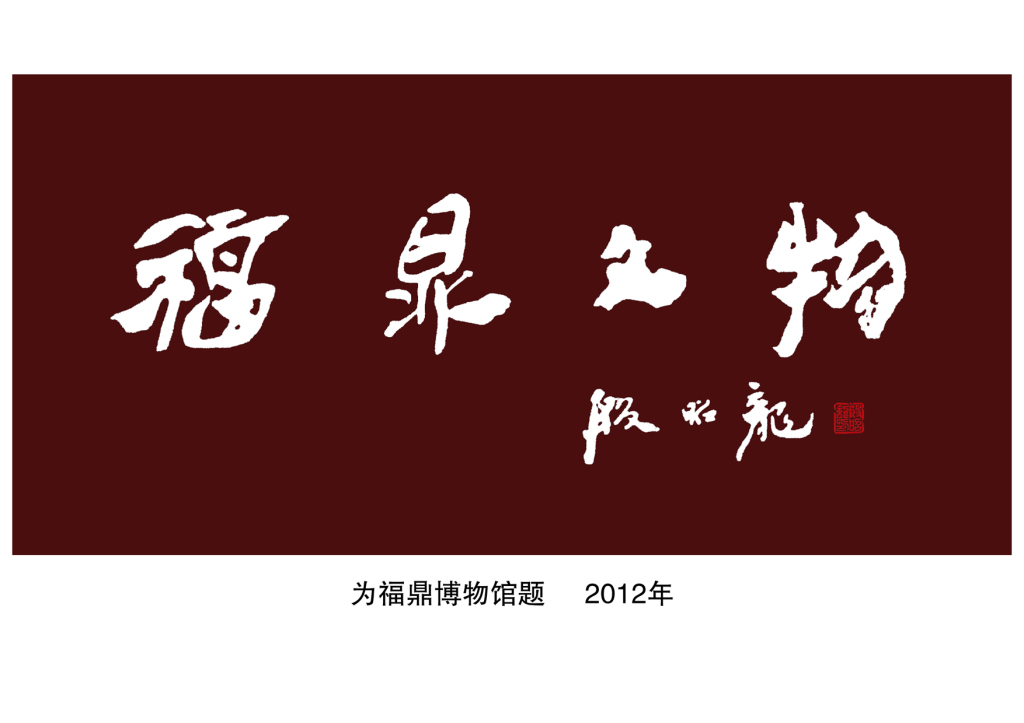 福鼎文物
段昭龍
为福鼎博物馆题 2012年